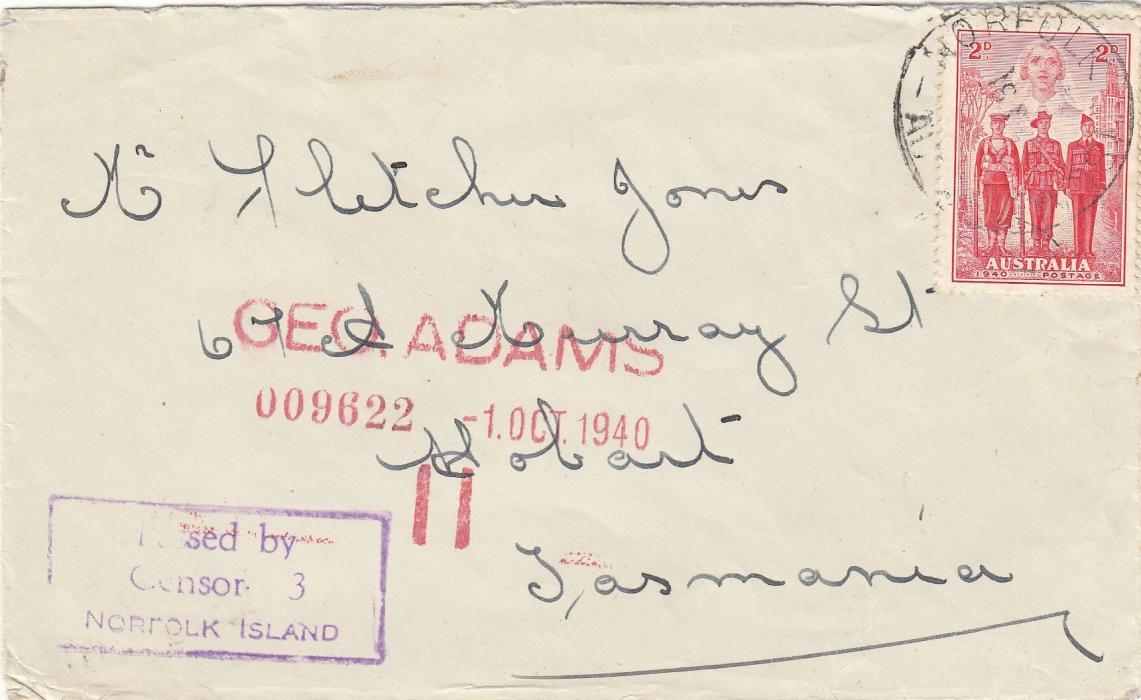 NORFOLK
2D 2D
AUSTRALIA
1940 POSTAGE
Mr Fletcher Jones
67A Murray St
GEO. ADAMS
009622 -1.OCT.1940
Hobart
11
Tasmania
Passed by
Censor 3
NORFOLK ISLAND